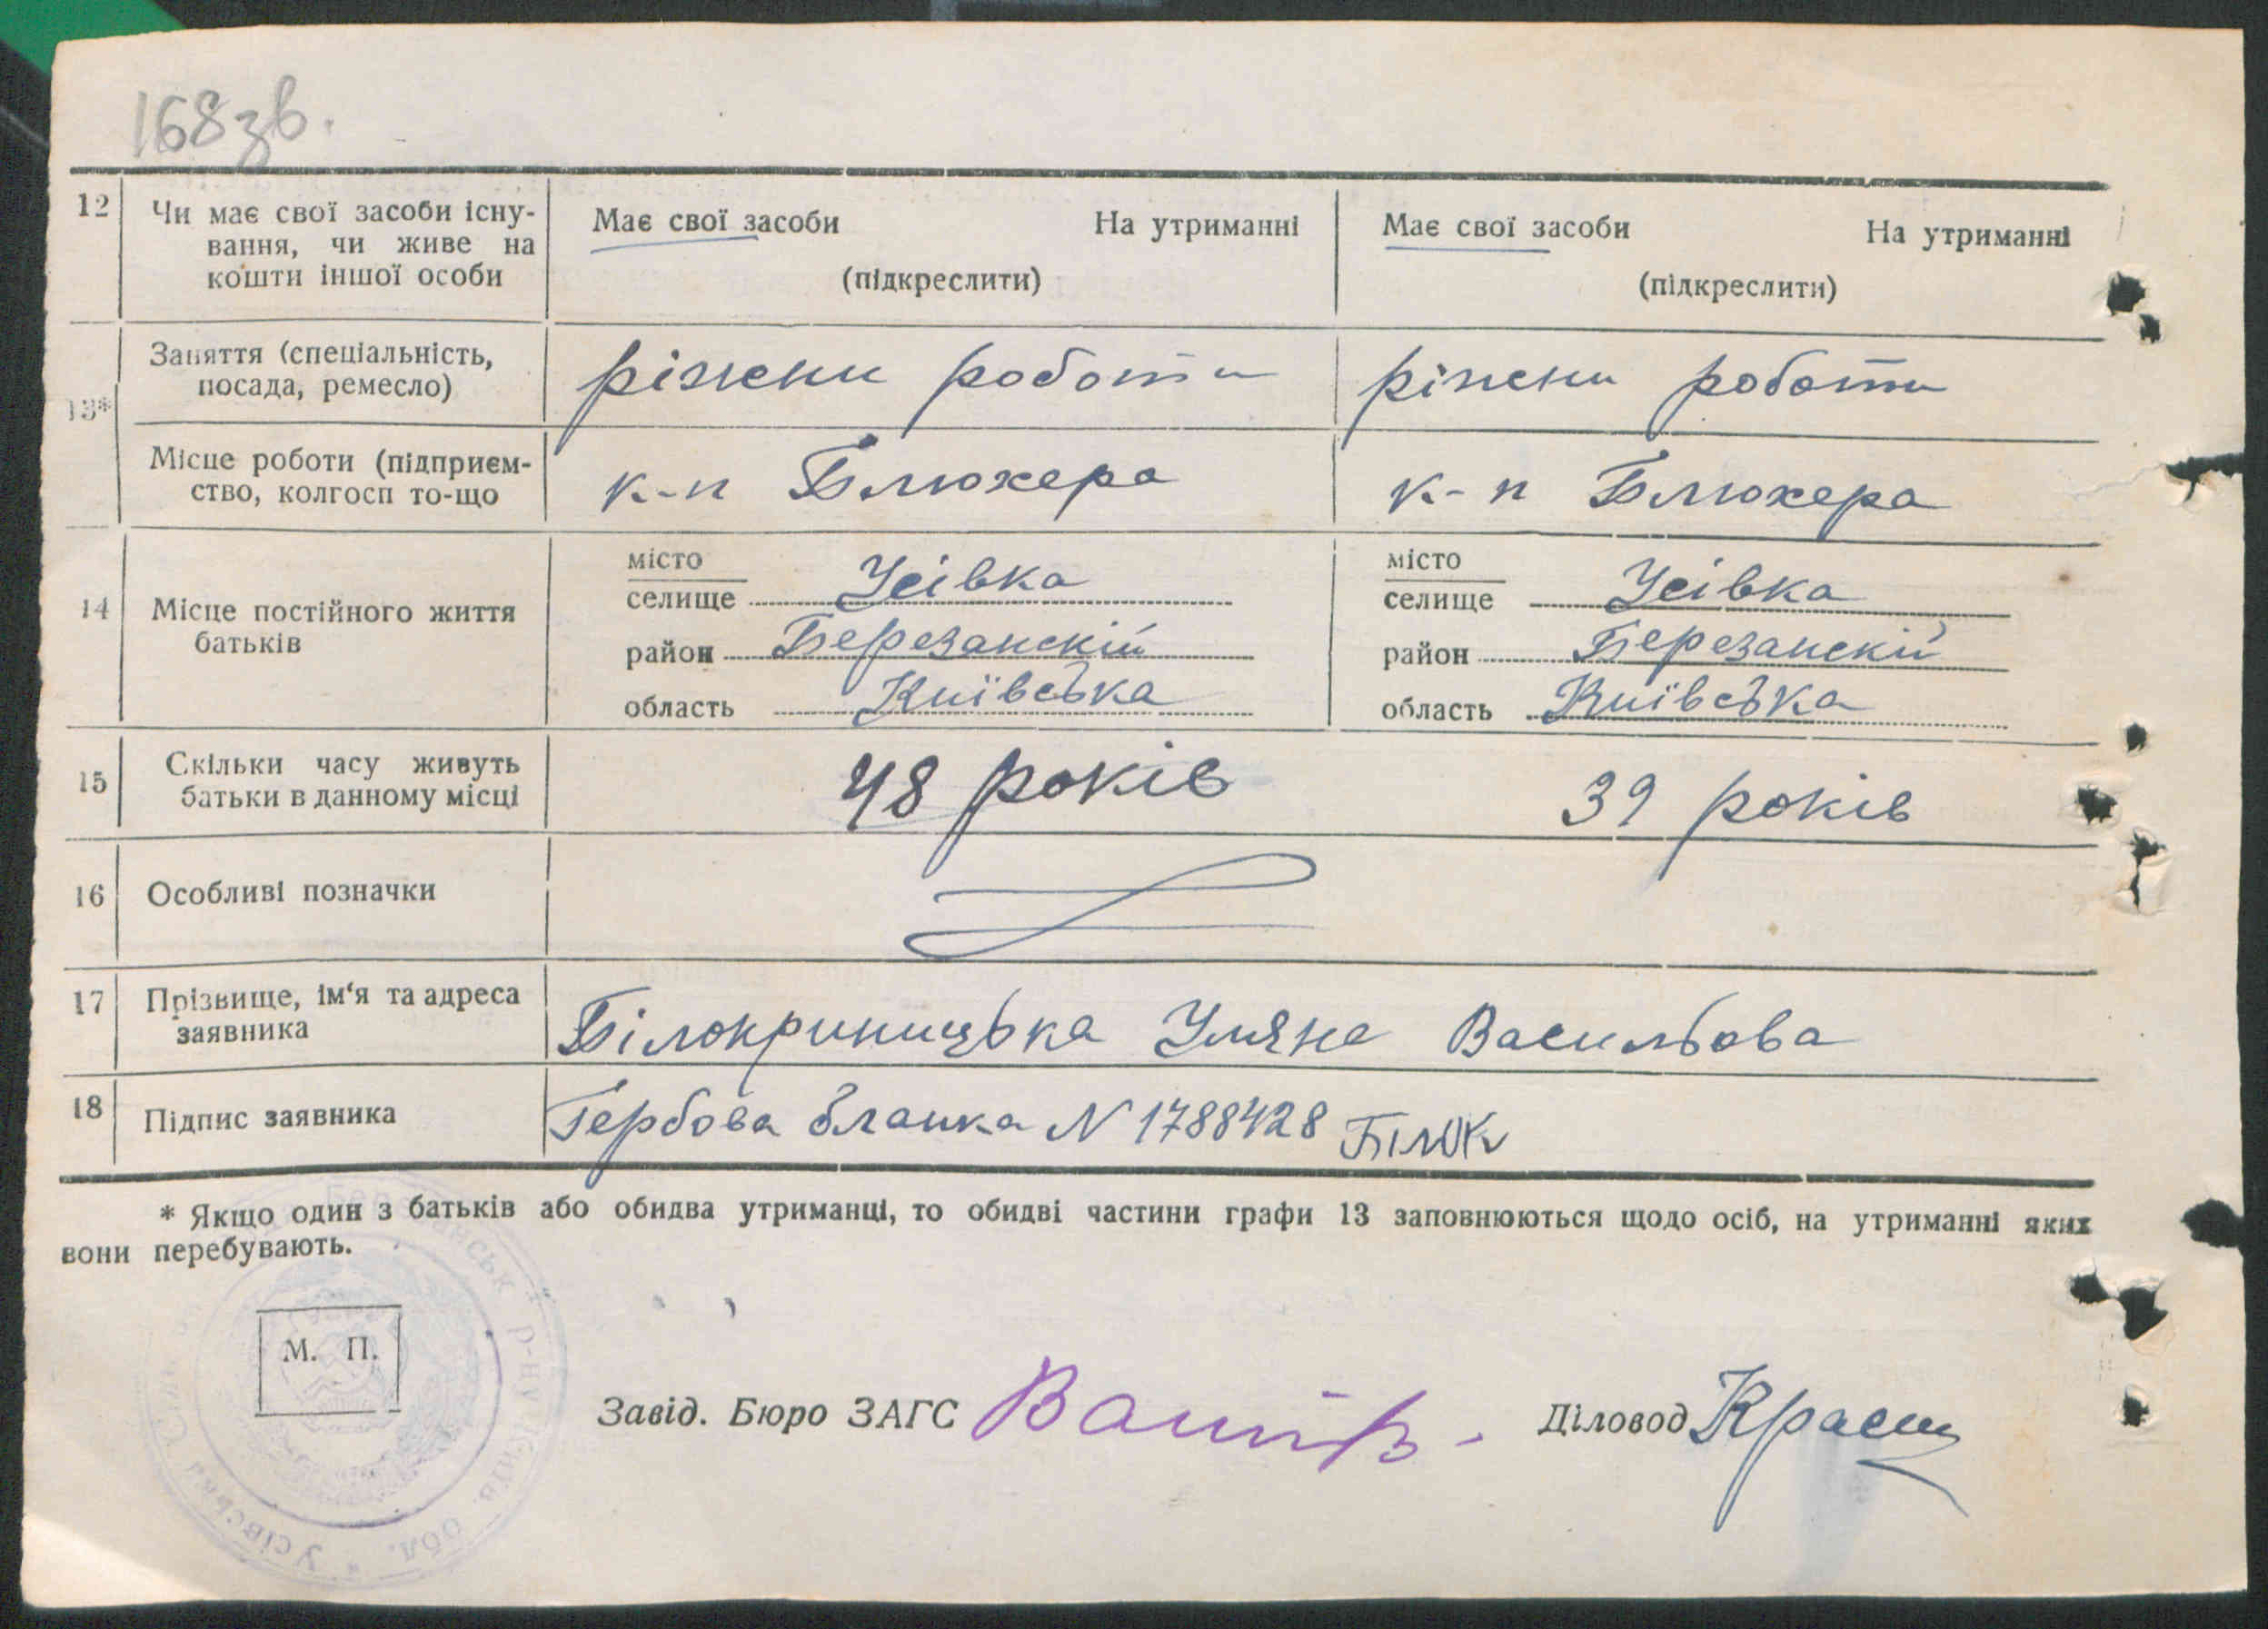 168зв.
12 Чи має свої засоби існу-
вання, чи живе на
кошти іншої особи
Має свої засоби На утриманні
(підкреслити)
Має свої засоби На утриманні
(підкреслити)
13*
Заняття (спеціальність,
посада, ремесло)
ріжени роботи
ріжени роботи
Місце роботи (підприєм-
ство, колгосп то-що
к-п Блюхера
к-п Блюхера
14 Місце постійного життя
батьків
місто
селище Усівка
район Березанскій
область Київська
місто
селище Усівка
район Березанскій
область Київська
15 Скільки часу живуть
батьки в данному місці
48 років
39 років
16 Особливі позначки
17 Прізвище, ім‘я та адреса
заявника
Білокриницька Уляна Васильова
18 Підпис заявника
Гербова бланка N 1788428 Білок
* Якщо один з батьків або обидва утриманці, то обидві частини графи 13 заповнюються щодо осіб, на утриманні яких
вони перебувають.
М. П.
Завід. Бюро ЗАГС
Діловод